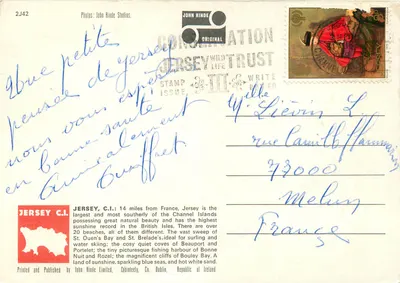 2J42
Photo: John Hinde Studios.
JOHN HINDE
ORIGINAL
CONSERVATION
JERSEY TRUST
STAMP
ISSUE
WHITE
Une petite
pensée de Jersey
nous vous espérons
en bonne santé
Amicalement
Mlle Liévin L.
rue Camille Flammarion
77000
Melun
France
JERSEY C.I.
JERSEY, C.I.: 14 miles from France, Jersey is the
largest and most southerly of the Channel Islands
possessing great natural beauty and has the highest
sunshine record in the British Isles. There are over
20 beaches, all of them different. The vast sweep of
St. Ouen's Bay and St. Brelade's.ideal for surfing and
water skiing; the cosy quiet coves of Beauport and
Portelet; the tiny picturesque fishing harbour of Bonne
Nuit and Rozel; the magnificent cliffs of Bouley Bay. A
land of sunshine, sparkling blue seas, and hot white sand.
Printed and Published by John Hinde Limited, Cabinteely, Co. Dublin, Republic of Ireland